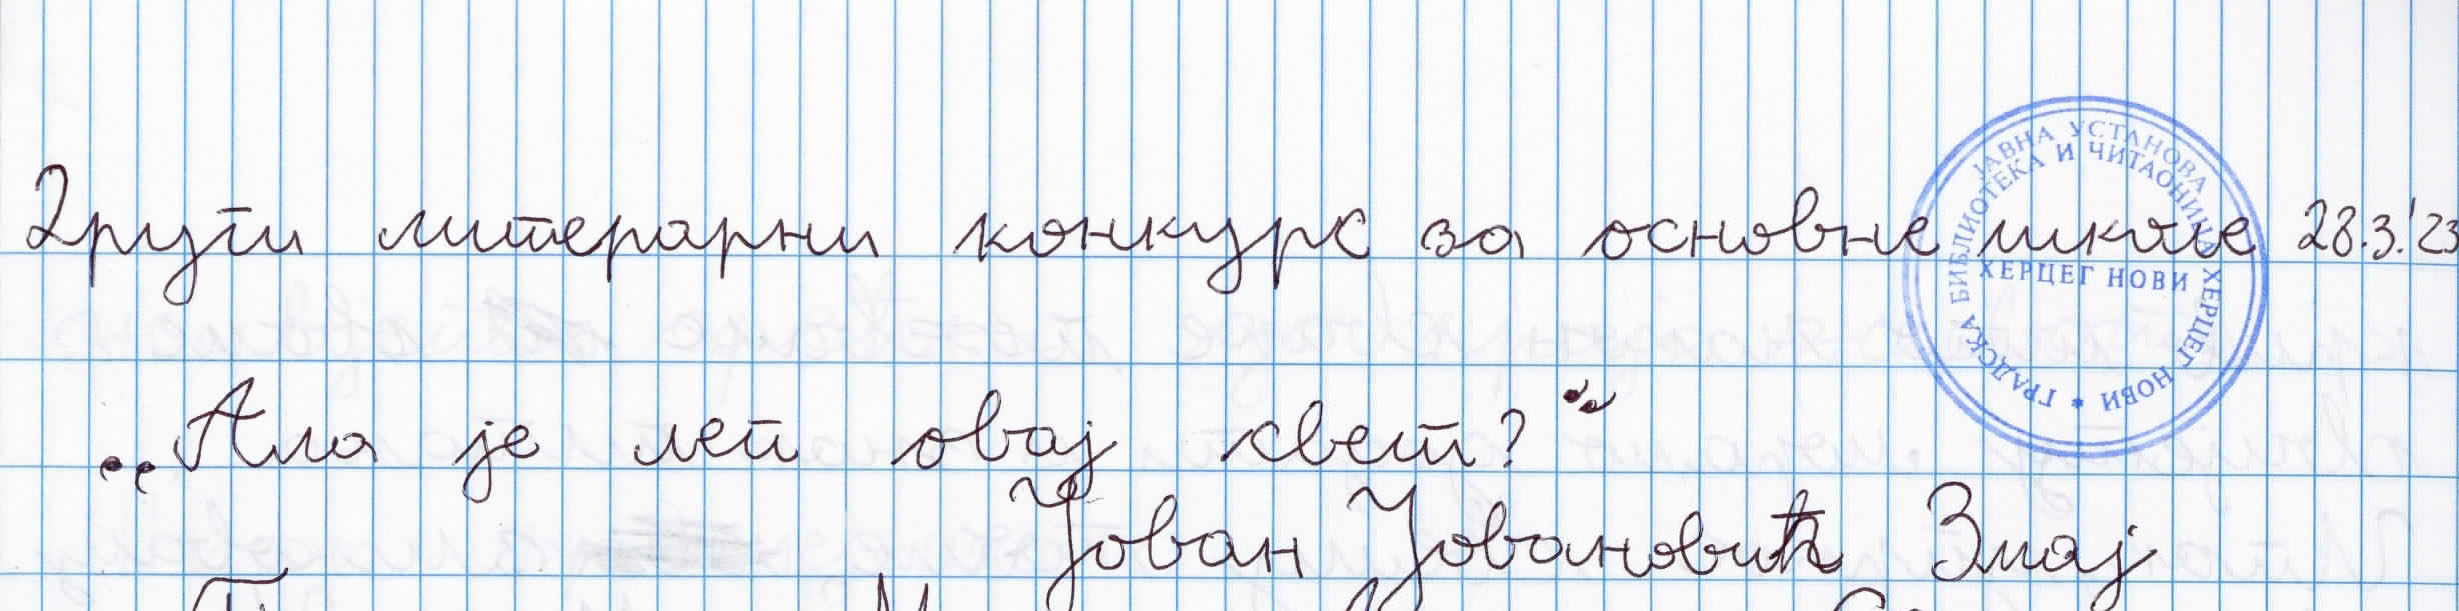 Други литерарни конкурс за основне школе 28.3.'23
ЈАВНА УСТАНОВА
ГРАДСКА БИБЛИОТЕКА И ЧИТАОНИЦА ХЕРЦЕГ НОВИ *
ХЕРЦЕГ НОВИ
„Ала је леп овај свет?“
Јован Јовановић Змај